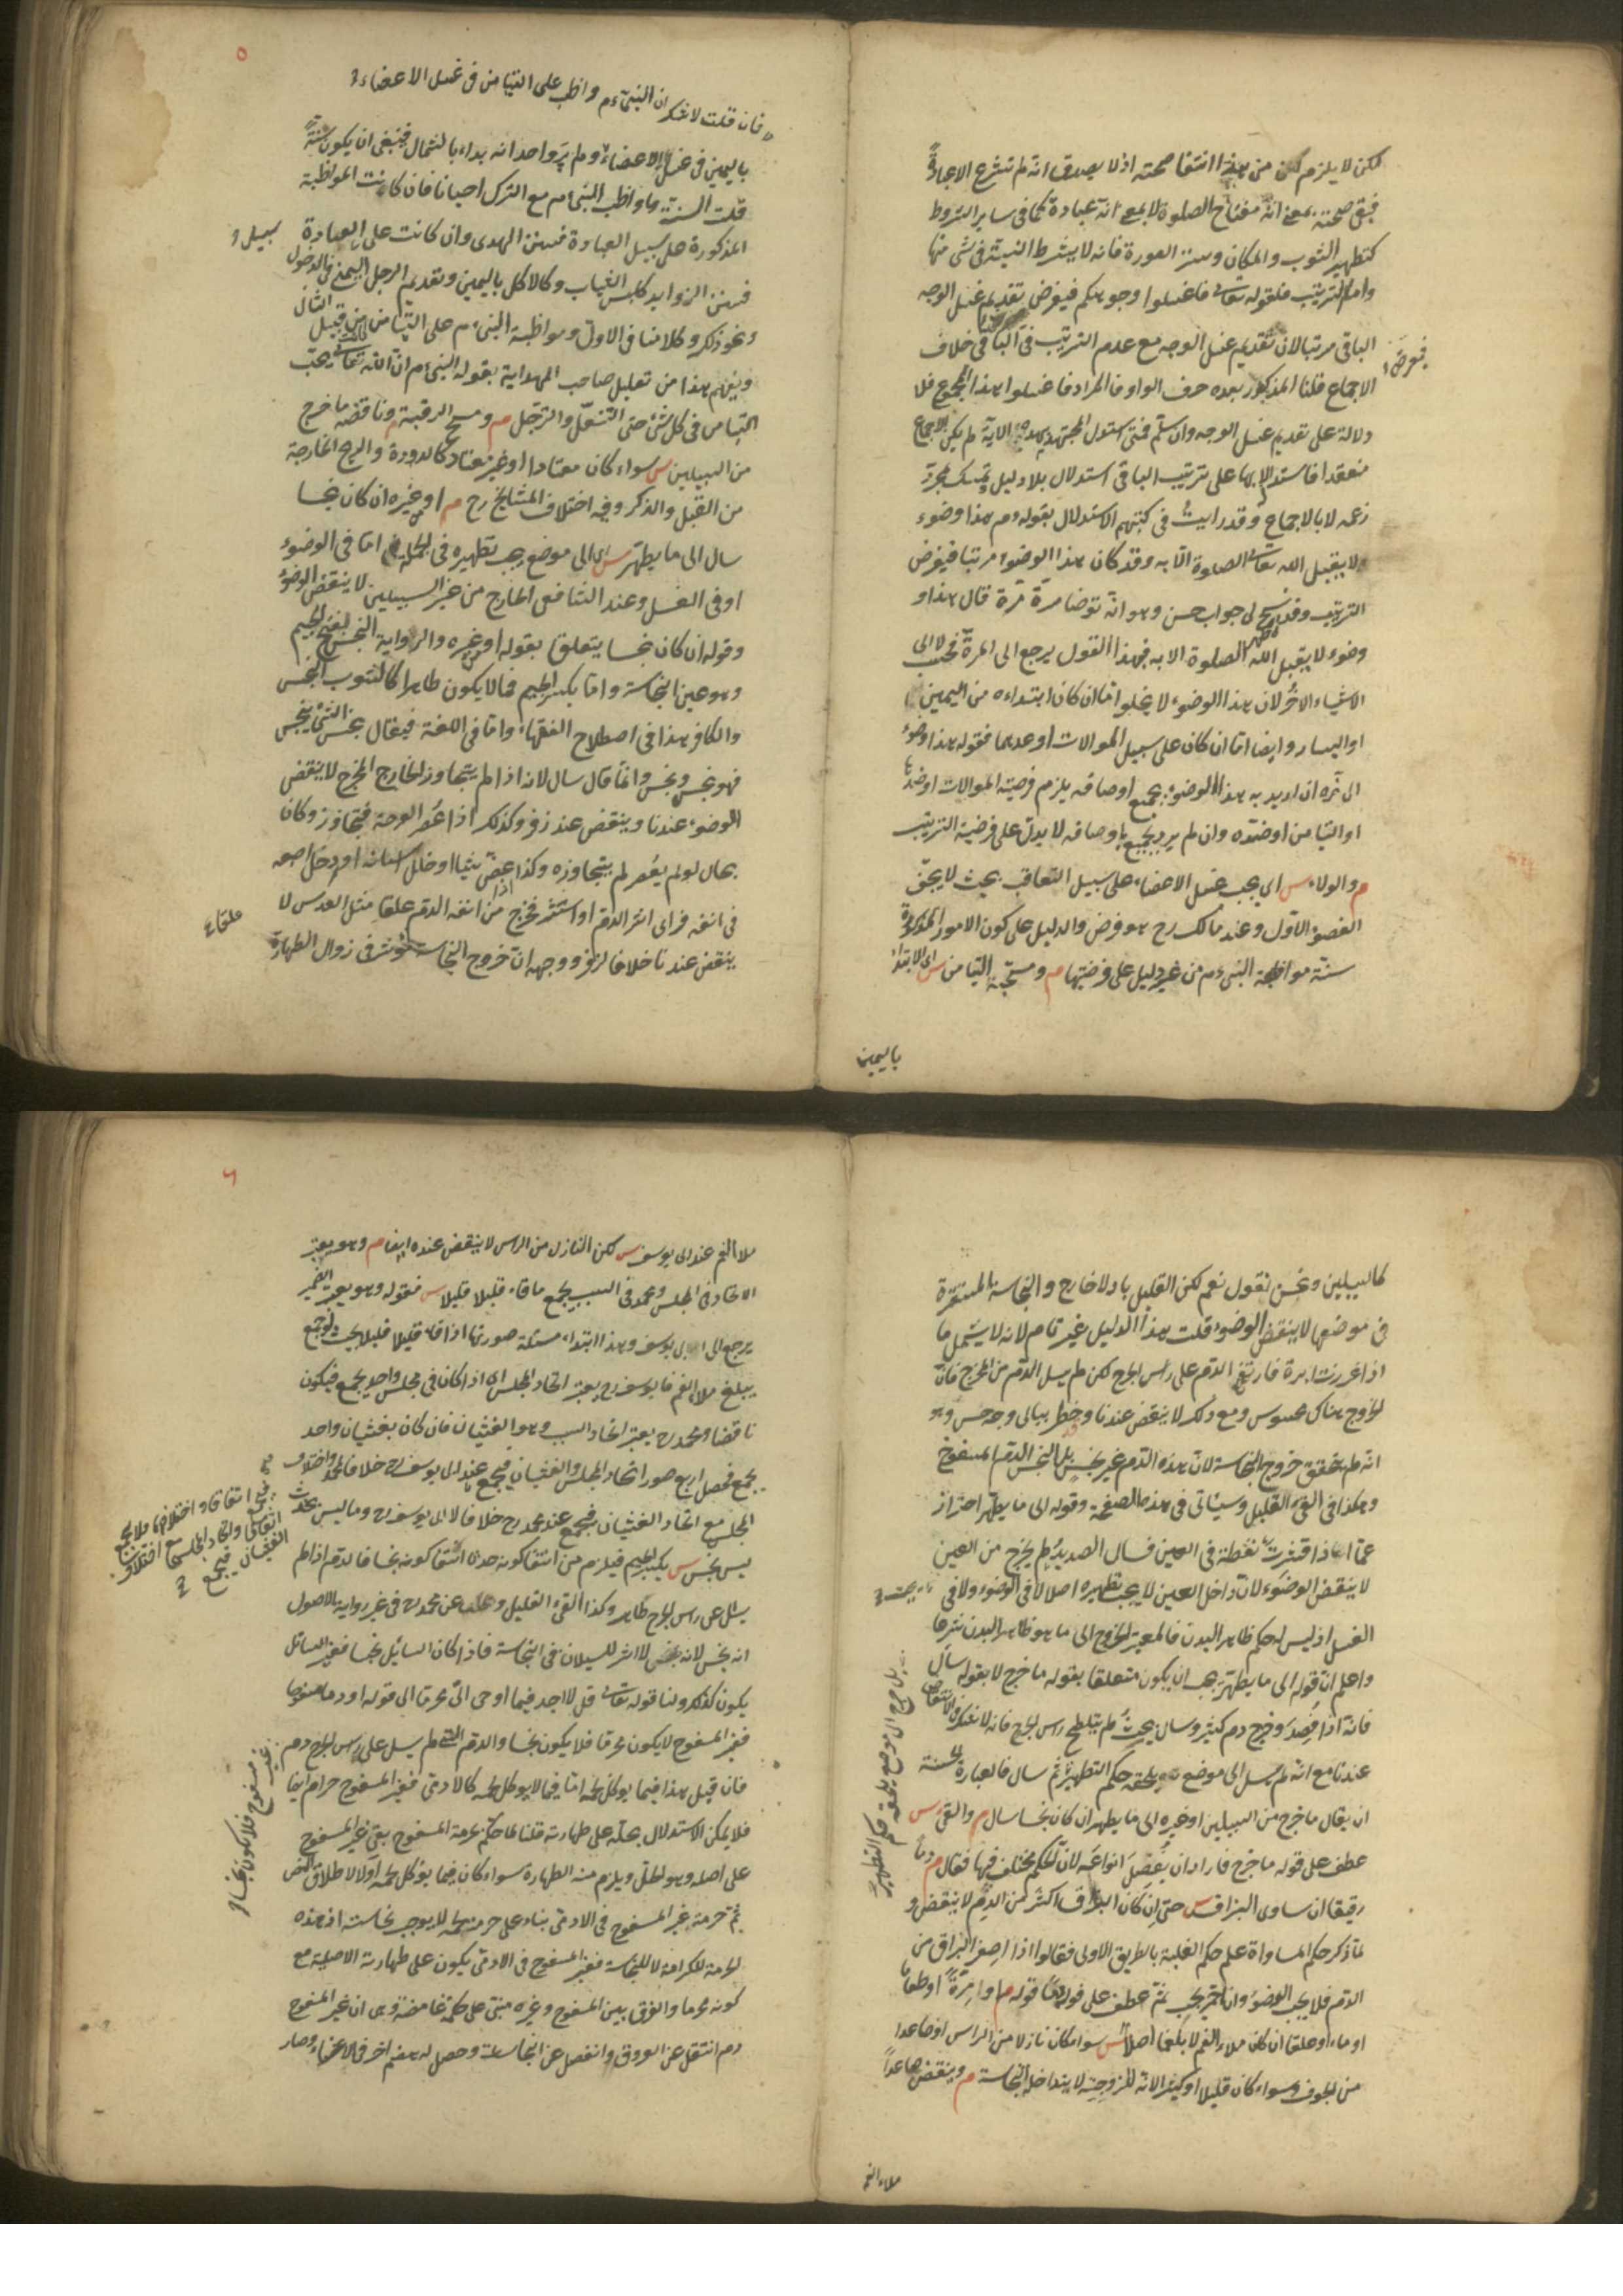 لكن لا يلزم لكن من هذا انتفا صحته اذ لا يصدق انه لم تشرع الا عبادةً
فبقى صحته بمعنى انه مفتاح الصلوة لا بمعنى انه عبادة كما فى ساير الشروط
كتطهير الثوب والمكان وستر العورة فانه لا يشترط النية فى شى منها
واما الترتيب فلقوله تعالى فاغسلوا وجوهكم فيفرض تقديم غسل الوجه
فيفرض
الباقى مرتبا لان تقديم غسل الوجه مع عدم الترتيب فى الباقى خلاف
الاجماع قلنا المذكور بعده حرف الواو فالمراد فاغسلوا هذا المجموع فلا
دلالة على تقديم غسل الوجه وان سلم فمتى استدل المجتهد بهذه الاية لم يكن الاجماع
منعقدا فاستدلاله بها على ترتيب الباقى استدلال بلا دليل وتمسك بمجرد
زعمه لا بالاجماع وقد رايت فى كتبهم الاستدلال بقوله عم هذا وضوء
لا يقبل الله تعالى الصلوة الا به وقد كان هذا الوضوء مرتبا فيفرض
الترتيب وقد سنح لى جواب حسن وهو انه توضا مرة مرة قال هذا و
وضوء لا يقبل الله تعالى الصلوة الا به فهذا القول يرجع الى المرة فحسب لا الى
الاشياء الاخر لان هذا الوضوء لا يخلوا اما ان كان ابتداءه من اليمين
او اليسار وايضا اما ان كان على سبيل الموالات او عدمها فقوله هذا وضوء
الى اخره ان اريد به هذا الوضوء بجميع اوصافه يلزم فرضية الموالات او ضدها
او التيامن او ضده وان لم يرد بجميع اوصافه لا يدل على فرضية الترتيب
م والولاء س اى يجب غسل الاعضاء على سبيل التعاقب بحيث لا يجف
العضو الاول وعند مالك رح هو فرض والدليل على كون الامور المذكورة
سنة مواظبة النبى عم من غير دليل على فرضيتها م ومستحبه التيامن س اى الابتداء
باليمين
٥
فان قلت لا شك ان النبى عم واظب على التيامن فى غسل الاعضاء
باليمين فى غسل الاعضاء ولم يرو احد انه بداء بالشمال فينبغى ان يكون سنة
قلت السنة ما واظب النبى عم مع الترك احيانا فان كانت المواظبة
المذكورة على سبيل العبادة فسنن الهدى وان كانت على العادة
سبيل
فسنن الزوايد كلبس الثياب وكالاكل باليمين وتقديم الرجل اليمنى فى الدخول
ونحو ذلك وكلامنا فى الاول ومواظبة النبى عم على التيامن من قبيل الثانى
ويفهم هذا من تعليل صاحب الهداية بقوله النبى عم ان الله تعالى يحب
التيامن فى كل شئ حتى التنعل والترجل م ومسح الرقبة م وناقضه ما خرج
من السبيلين س سواء كان معتادا او غير معتاد كالدودة والريح الخارجة
من القبل والذكر وفيه اختلاف المشايخ رح م او من غيره ان كان نجسا
سال الى ما يطهر س اى الى موضع يجب تطهيره فى الجملة اما فى الوضوء
او فى الغسل وعند الشافعى الخارج من غير السبيلين لا ينقض الوضوء
وقوله ان كان نجسا يتعلق بقوله او من غيره والرواية النجس بفتح الجيم
وهو عين النجاسة واما بكسر الجيم فما لا يكون طاهرا كالثوب النجس
والكافر هذا فى اصطلاح الفقهاء واما فى اللغة فيقال نجس الشئ ينجس
فهو نجس ونجس وانما قال سال لانه اذا لم يتجاوز الخارج المخرج لا ينقض
الوضوء عندنا وينقض عند زفر وكذلك اذا عصر القرحة فتجاوز وكان
بحال لو لم يعصر لم يتجاوزه وكذا عض شيئا او خلل اسنانه او دخل اصبعه
فى انفه فراى اثر الدم او استنثر فخرج من انفه الدم علقا مثل العدس لا
علقا
ينقض عندنا خلافا لزفر ووجهه ان خروج النجاسة مؤثر فى زوال الطهارة
كالسبيلين ونحن نقول نعم لكن القليل باد لا خارج والنجاسة المستقرة
فى موضعها لا ينقض الوضوء قلت هذا الدليل غير تام لانه لا يشمل ما
اذا غرزت ابرة فارتقى الدم على راس الجرح لكن لم يسل الدم من المخرج فان
الخروج هناك محسوس ومع ذلك لا ينقض عندنا وخطر ببالى وجه حسن وهو
انه لم يتحقق خروج النجاسة لان هذه الدم غير نجس بل النجس الدم المسفوح
وهكذا فى القئ القليل وسياتى فى هذه الصفحة وقوله الى ما يطهر احتراز
عما اذا قشرت نقطة فى العين فسال الصديد لم يخرج من العين
لا ينقض الوضوء لان داخل العين لا يجب تطهيره اصلا لا فى الوضوء ولا فى
الغسل اذ ليس له حكم ظاهر البدن فالمعتبر الخروج الى ما هو ظاهر البدن شرعا
واعلم ان قوله الى ما يطهر يجب ان يكون متعلقا بقوله ما خرج لا بقوله سال
فانه اذا فصد وخرج دم كثير وسال بحيث لم يتلطخ راس الجرح فانه لا شك فى الانتقاض
عندنا مع انه لم يسل الى موضع يلحقه حكم التطهير ثم سال فالعبارة الحسنة
بل خرج الى موضع يلحقه حكم التطهير
ان يقال ما خرج من السبيلين او غيره الى ما يطهر ان كان نجسا سال م والقئ س
عطف على قوله ما خرج فاراد ان يفصل انواعه لان الحكم مختلف فيها فقال م دما
رقيقا ان ساوى البزاق س حتى ان كان البزاق اكثر من الدم لا ينقض و
لما ذكر حكم المساواة علم حكم الغلبة بالطريق الاولى فقالوا اذا اصفر البزاق من
الدم فلا يجب الوضوء وان احمر يجب ثم عطف على قوله دما قوله م او مرة او طعاما
او ماء او علقا ان كان ملاء الفم لا بلغما اصلا س سواء كان نازلا من الراس او صاعدا
من الجوف وسواء كان قليلا او كثيرا لانه للزوجته لا يتداخله النجاسة م وينقض صاعدا
ملاء الفم
٦
ملا الفم عند ابى يوسف س لكن النازل من الراس لا ينقض عنده ايضا م وهو يعتبر
الاتحاد فى المجلس ومحمد فى السبب يجمع ما قاء قليلا قليلا س فقوله وهو يعتبر الضمير
يرجع الى ابى يوسف وهذا ابتداء مسئلة صورتها اذا قاء قليلا قليلا بحيث لو جمع
يبلغ ملاء الفم فابو يوسف رح يعتبر اتحاد المجلس اى اذا كان فى مجلس واحد يجمع فيكون
ناقضا ومحمد رح يعتبر اتحاد السبب وهو الغثيان فان كان بغثيان واحد
يجمع فحصل اربع صور اتحاد المجلس والغثيان فيجمع عند ابى يوسف رح خلافا لمحمد واختلاف
المجلس مع اتحاد الغثيان فيجمع عند محمد رح خلافا لابى يوسف رح وما ليس بحدث
فيجمع اتفاقا واختلافهما فلا يجمع
اتفاقا واتحاد المجلس مع اختلاف
الغثيان فيجمع
ليس بنجس س بكسر الجيم فيلزم من انتفا كونه حدثا انتفا كونه نجسا فالدم اذا لم
يسل عن راس الجرح طاهر وكذا القئ القليل وعن محمد رح فى غير رواية الاصول
انه نجس لانه لا اثر للسيلان فى النجاسة فاذا كان السائل نجسا فغير السائل
يكون كذلك ولنا قوله تعالى قل لا اجد فيما اوحى الى محرما الى قوله او دما مسفوحا
فغير المسفوح لا يكون محرما فلا يكون نجسا والدم الذى لم يسل على راس الجرح دم
غير مسفوح فلا يكون نجسا
فان قيل هذا فيما يوكل لحمه اما فيما لا يوكل لحمه كالادمى فغير المسفوح حرام ايضا
فلا يمكن الاستدلال بحله على طهارته قلنا لما حكم بحرمة المسفوح بقى غير المسفوح
على اصله وهو الحل ويلزم منه الطهارة سواء كان فيما يوكل لحمه او لا لاطلاق النص
ثم حرمة غير المسفوح فى الادمى بناء على حرمة لحمه لا يوجب نجاسته اذ هذه
الحرمة للكرامة لا للنجاسة فغير المسفوح فى الادمى يكون على طهارته الاصلية مع
كونه محرما والفرق بين المسفوح وغيره مبنى على حكمة غامضة وهى ان غير المسفوح
دم انتقل عن العروق وانفصل عن النجاسات وحصل له هضم اخر فى الاعضاء وصار